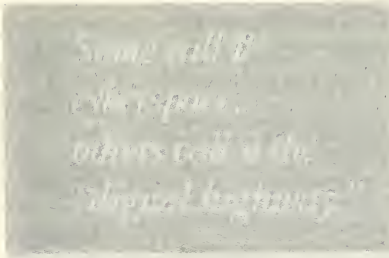 Some call it
cyberspace,
others call it the
"digital highway."